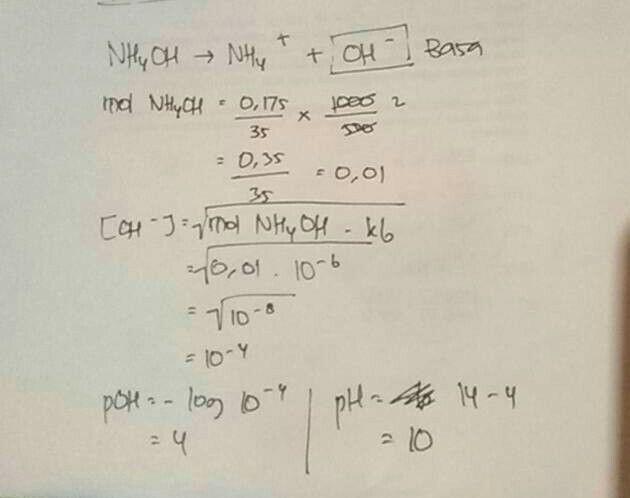 NH4OH → NH4+ + OH- Basa
mol NH4OH = 0,175/35 × 1000/500 2
= 0,35/35 = 0,01
[OH-] = √mol NH4OH . kb
= √0,01 . 10-6
= √10-8
= 10-4
pOH = - log 10-4
= 4
pH = 14 - 4
= 10